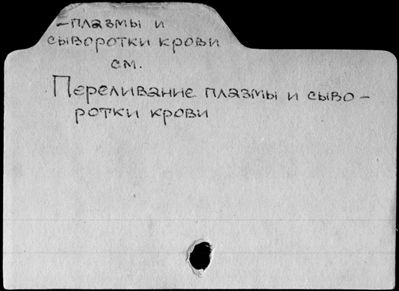 -плазмы и
сыворотки крови
см.
Переливание плазмы и сыво-
ротки крови